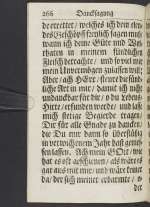 266 Danckſagung
de errettet / welches ich dein elen-
des Geſchöpff hertzlich ſagen muß
wann ich deine Güte und Wol-
thaten in meinem ſündlichen
Fleiſch betrachte / und ſo viel mir
mein Unvermögen zulaſſen will:
Aber / ach HErr / ſteure der ſünd-
liche Art in mir / damit ich nicht
undanckbar für dir / o du Lebens-
Hirte / erfunden werde / und laß
mich ſtetige Begierde tragen /
Dir für alle Gnade zu dancken /
die Du mir dann ſo überflüſſig
in verwichenem Jahr haſt genieſ-
ſen laſſen. Ach mein GOtt / wie
hat es oft geſchienen / als wäre es
gar aus mit mir / und wäre keiner
da / der ſich meiner erbarmte / o-
der